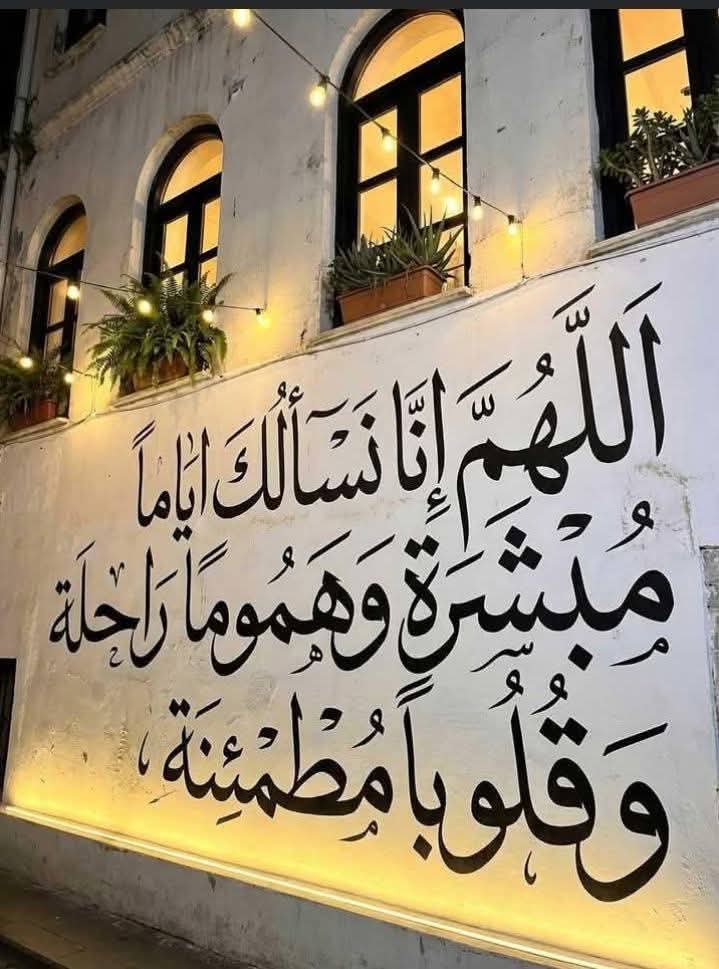 اَللَّهُمَّ إِنَّا نَسْأَلُكَ ايَاماً
مُبْشَرَةً وَهَمُوماً رَاحلَة
وَقُلُوباً مُطْمئِنَة،